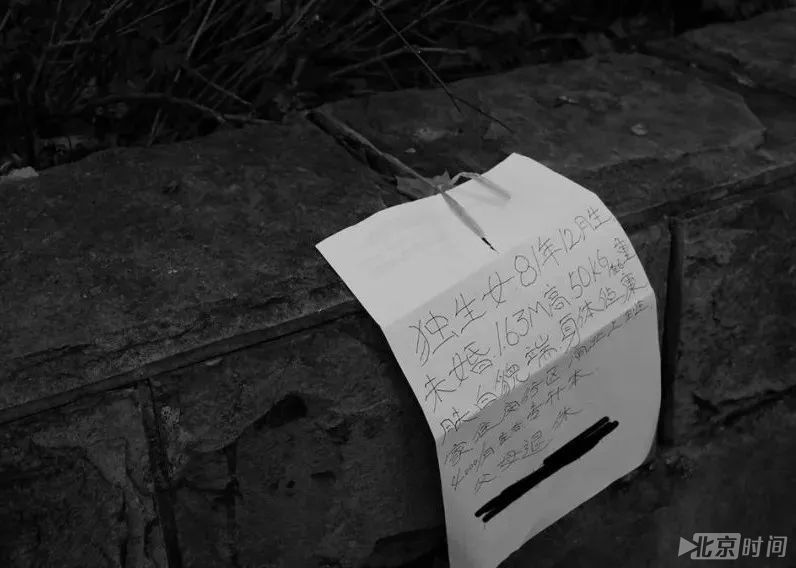 独生女 81年12月生
未婚 1.63M高 50KG重
肤白貌端身体健康
家住闵行区
父母退休
北京时间